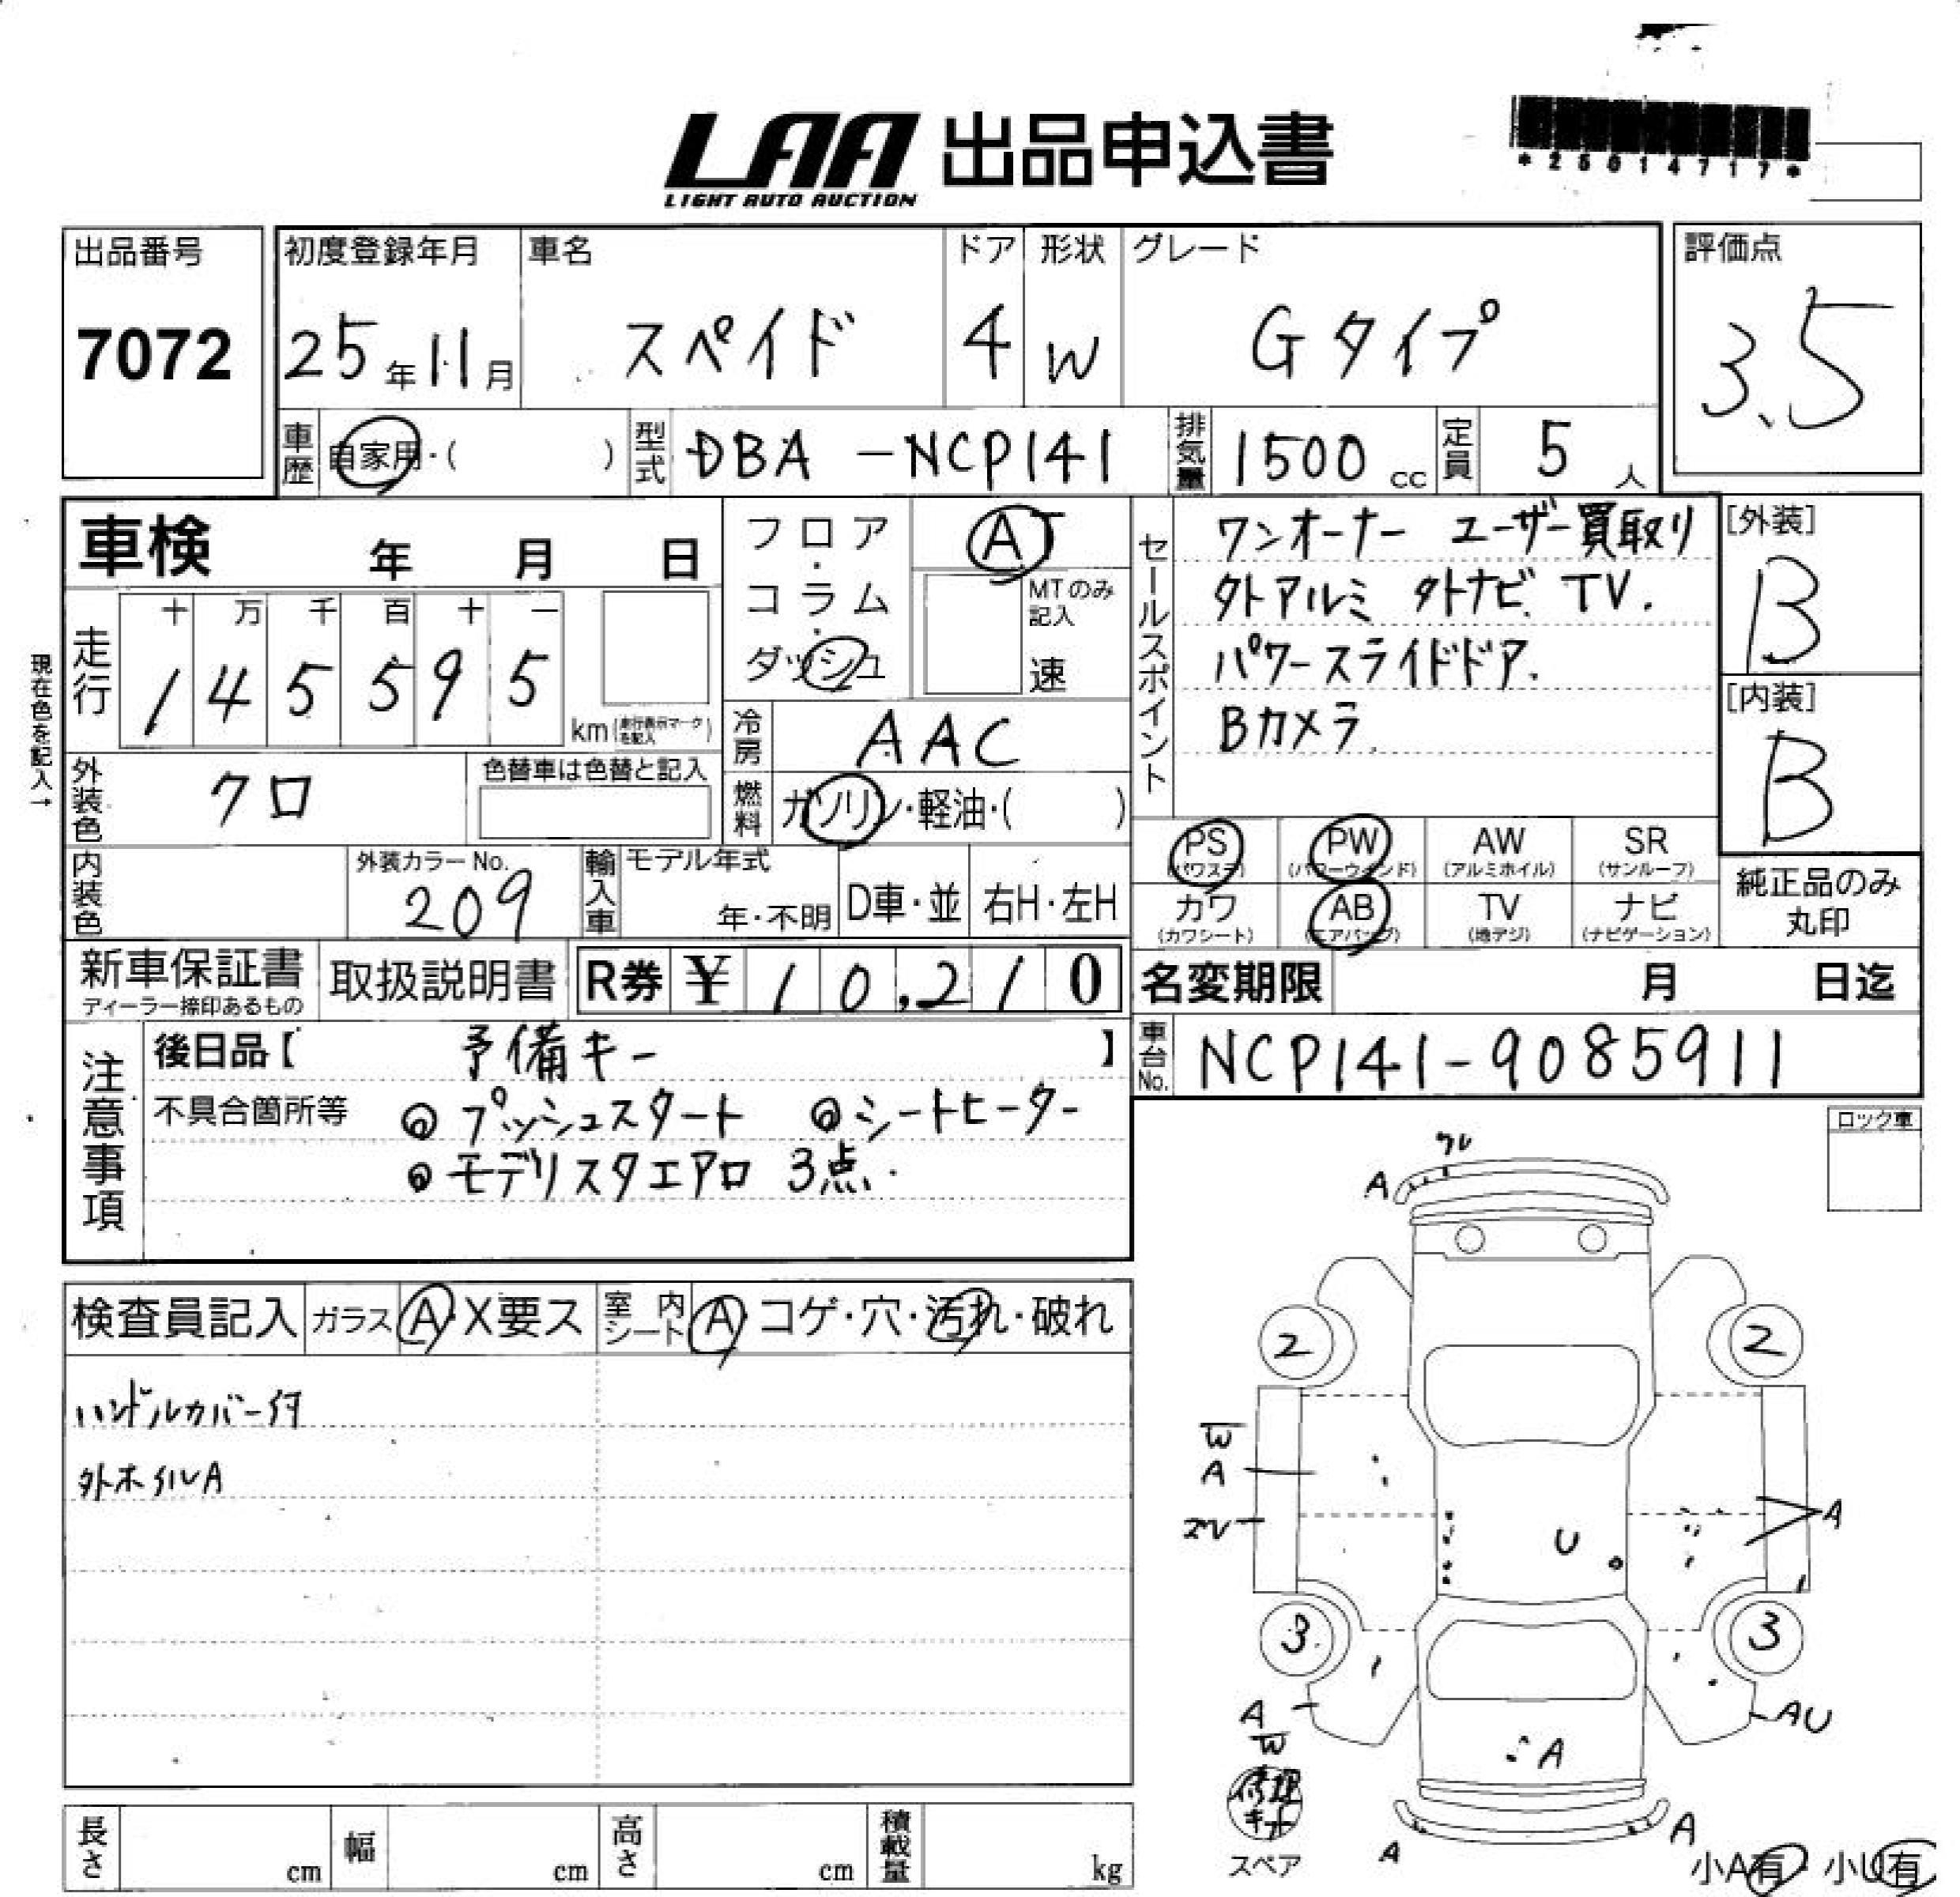 LAA 出品申込書
LIGHT AUTO AUCTION
*25014717*
出品番号
7072
初度登録年月
25年11月
車名
スペイド
ドア
4
形状
W
グレード
Gタイプ
評価点
3.5
車歴 自家用・( )
型式 DBA-NCP141
排気量 1500 cc
定員 5 人
車検 年 月 日
走行
十 万 千 百 十 一
1 4 5 5 9 5
km(走行表示マークを記入)
現在色を記入→
フロア・コラム・ダッシュ
AT
MTのみ記入
速
冷房 AAC
燃料 ガソリン・軽油・( )
外装色 クロ
色替車は色替と記入
内装色
外装カラーNo.
209
輸入車
モデル年式
年・不明
D車・並
右H・左H
セールスポイント
ワンオーナー ユーザー買取り
外アルミ 外ナビ. TV.
パワースライドドア.
Bカメラ
[外装]
B
[内装]
B
PS
(パワステ)
PW
(パワーウインド)
AW
(アルミホイル)
SR
(サンルーフ)
カワ
(カワシート)
AB
(エアバッグ)
TV
(地デジ)
ナビ
(ナビゲーション)
純正品のみ
丸印
新車保証書
ディーラー捺印あるもの
取扱説明書
R券 ¥ 10,210
名変期限 月 日迄
車台No. NCP141-9085911
注意事項
後日品【 予備キー 】
不具合箇所等 ◎プッシュスタート ◎シートヒーター
◎モデリスタエアロ 3点.
ロック車
検査員記入
ガラス A・X要ス
室内シート A・コゲ・穴・汚れ・破れ
ハンドルカバー付
外ホイルA
A
2
2
W
A
A
U
3
3
A
W
AU
A
修理キット
スペア
A
A
小A有・小U有
長さ cm
幅 cm
高さ cm
積載量 kg